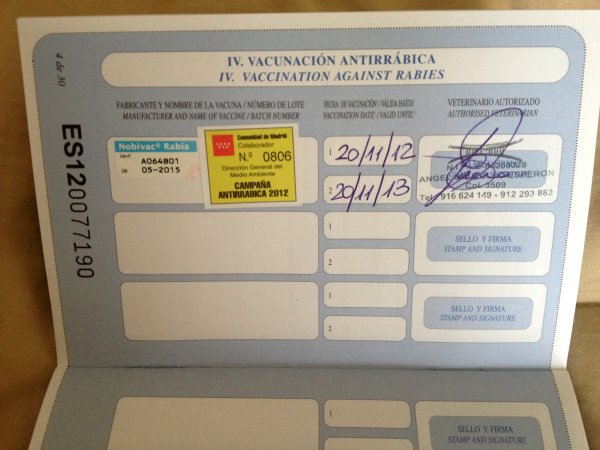 4 de 30
ES120077190
IV. VACUNACIÓN ANTIRRÁBICA
IV. VACCINATION AGAINST RABIES
FABRICANTE Y NOMBRE DE LA VACUNA / NÚMERO DE LOTE
MANUFACTURER AND NAME OF VACCINE / BATCH NUMBER
FECHA DE VACUNACIÓN / VÁLIDA HASTA
VACCINATION DATE / VALID UNTIL
VETERINARIO AUTORIZADO
AUTHORISED VETERINARIAN
Nobivac® Rabia
A064801
05-2015
Comunidad de Madrid
Colaborador
N.º 0806
Dirección General del
Medio Ambiente
CAMPAÑA
ANTIRRABICA 2012
1 20/11/12
2 20/11/13
ESPERON
Col. 3509
Telf: 916 624 149 - 912 293 883
1
2
SELLO Y FIRMA
STAMP AND SIGNATURE
1
2
SELLO Y FIRMA
STAMP AND SIGNATURE
1
2
SELLO Y FIRMA
STAMP AND SIGNATURE